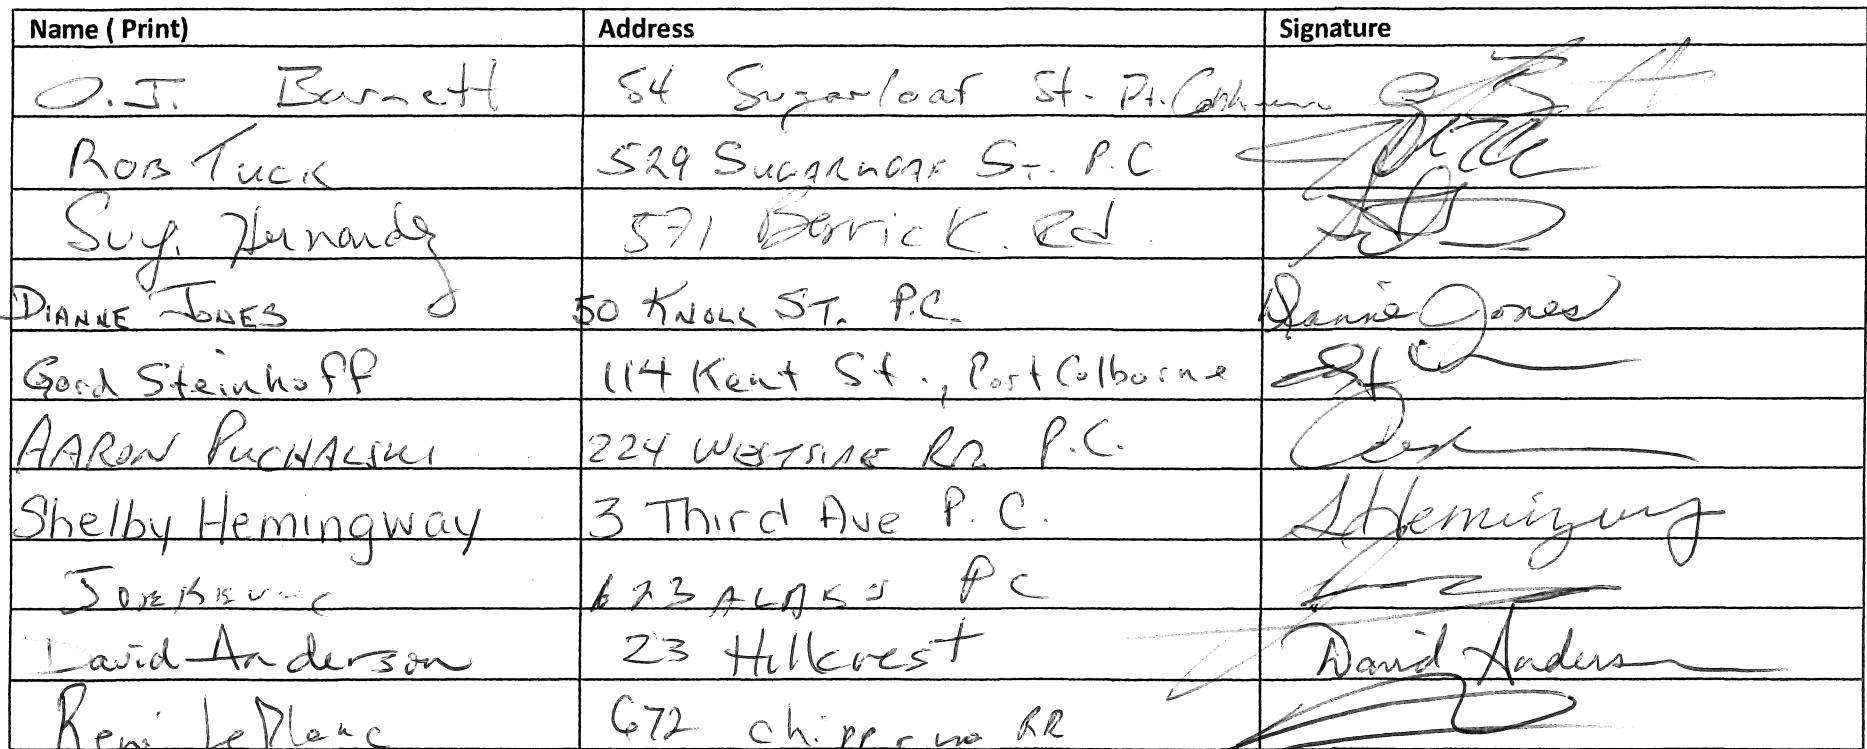 Name ( Print) Address Signature
O.J. Barnett 54 Sugarloaf St. Pt. Colborne
ROB TUCK 529 SUGARLOAF ST. P.C
Suy. Hernandez 571 Berrick. Rd.
DIANNE JONES 50 KNOLL ST. P.C. Dianne Jones
Gord Steinhoff 114 Kent St., Port Colborne
AARON PUCHALSKI 224 WESTSIDE RD. P.C.
Shelby Hemingway 3 Third Ave P.C. S Hemingway
623 PC
David Anderson 23 Hillcrest David Anderson
Remi LeBlanc 672 Chippawa RR